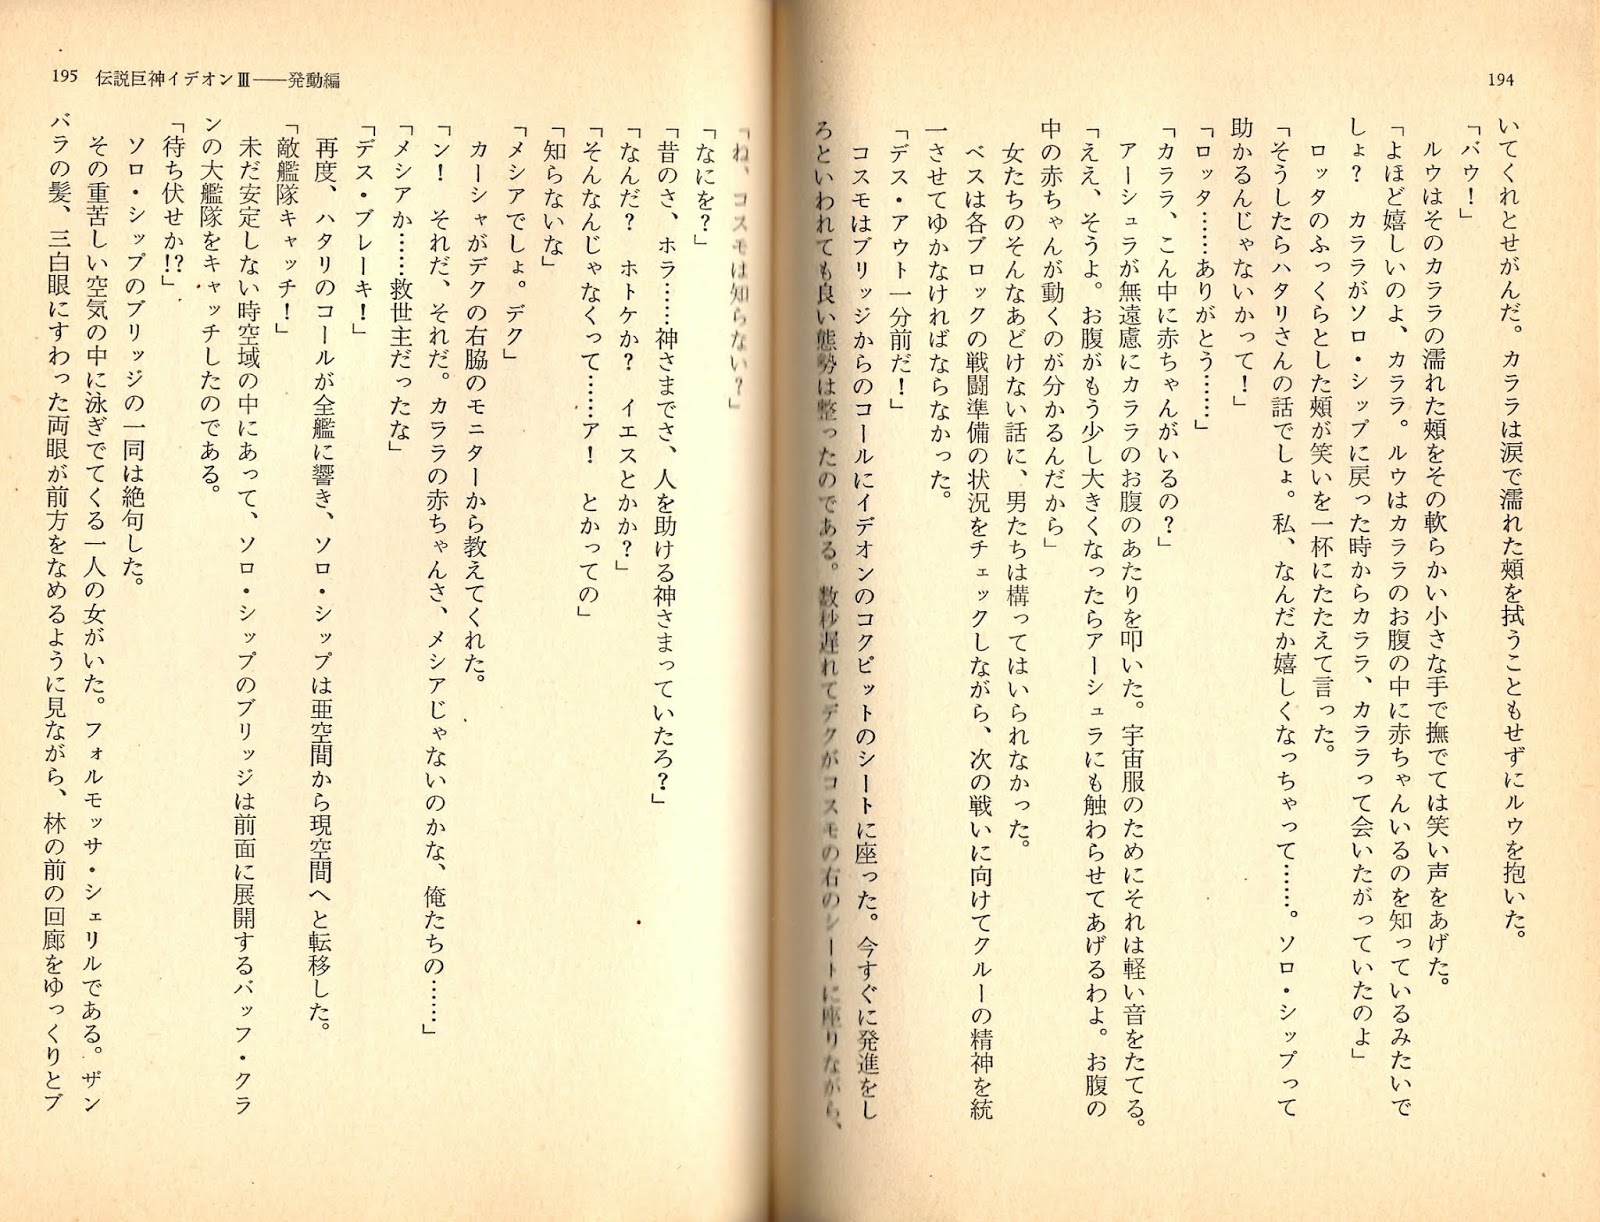 194
いてくれとせがんだ。カララは涙で濡れた頰を拭うこともせずにルウを抱いた。
「バウ！」
ルウはそのカララの濡れた頰をその軟らかい小さな手で撫でては笑い声をあげた。
「よほど嬉しいのよ、カララ。ルウはカララのお腹の中に赤ちゃんいるのを知っているみたいで
しょ？　カララがソロ・シップに戻った時からカララ、カララって会いたがっていたのよ」
ロッタのふっくらとした頰が笑いを一杯にたたえて言った。
「そうしたらハタリさんの話でしょ。私、なんだか嬉しくなっちゃって……。ソロ・シップって
助かるんじゃないかって！」
「ロッタ……ありがとう……」
「カララ、こん中に赤ちゃんがいるの？」
アーシュラが無遠慮にカララのお腹のあたりを叩いた。宇宙服のためにそれは軽い音をたてる。
「ええ、そうよ。お腹がもう少し大きくなったらアーシュラにも触わらせてあげるわよ。お腹の
中の赤ちゃんが動くのが分かるんだから」
女たちのそんなあどけない話に、男たちは構ってはいられなかった。
ベスは各ブロックの戦闘準備の状況をチェックしながら、次の戦いに向けてクルーの精神を統
一させてゆかなければならなかった。
「デス・アウト一分前だ！」
コスモはブリッジからのコールにイデオンのコクピットのシートに座った。今すぐに発進をし
ろといわれても良い態勢は整ったのである。数秒遅れてデクがコスモの右のシートに座りながら、
195 伝説巨神イデオンⅢ——発動編
「ね、コスモは知らない？」
「なにを？」
「昔のさ、ホラ……神さまでさ、人を助ける神さまっていたろ？」
「なんだ？　ホトケか？　イエスとかか？」
「そんなんじゃなくって……ア！　とかっての」
「知らないな」
「メシアでしょ。デク」
カーシャがデクの右脇のモニターから教えてくれた。
「ン！　それだ、それだ。カララの赤ちゃんさ、メシアじゃないのかな、俺たちの……」
「メシアか……救世主だったな」
「デス・ブレーキ！」
再度、ハタリのコールが全艦に響き、ソロ・シップは亜空間から現空間へと転移した。
「敵艦隊キャッチ！」
未だ安定しない時空域の中にあって、ソロ・シップのブリッジは前面に展開するバッフ・クラ
ンの大艦隊をキャッチしたのである。
「待ち伏せか!?」
ソロ・シップのブリッジの一同は絶句した。
その重苦しい空気の中に泳ぎでてくる一人の女がいた。フォルモッサ・シェリルである。ザン
バラの髪、三白眼にすわった両眼が前方をなめるように見ながら、林の前の回廊をゆっくりとブ